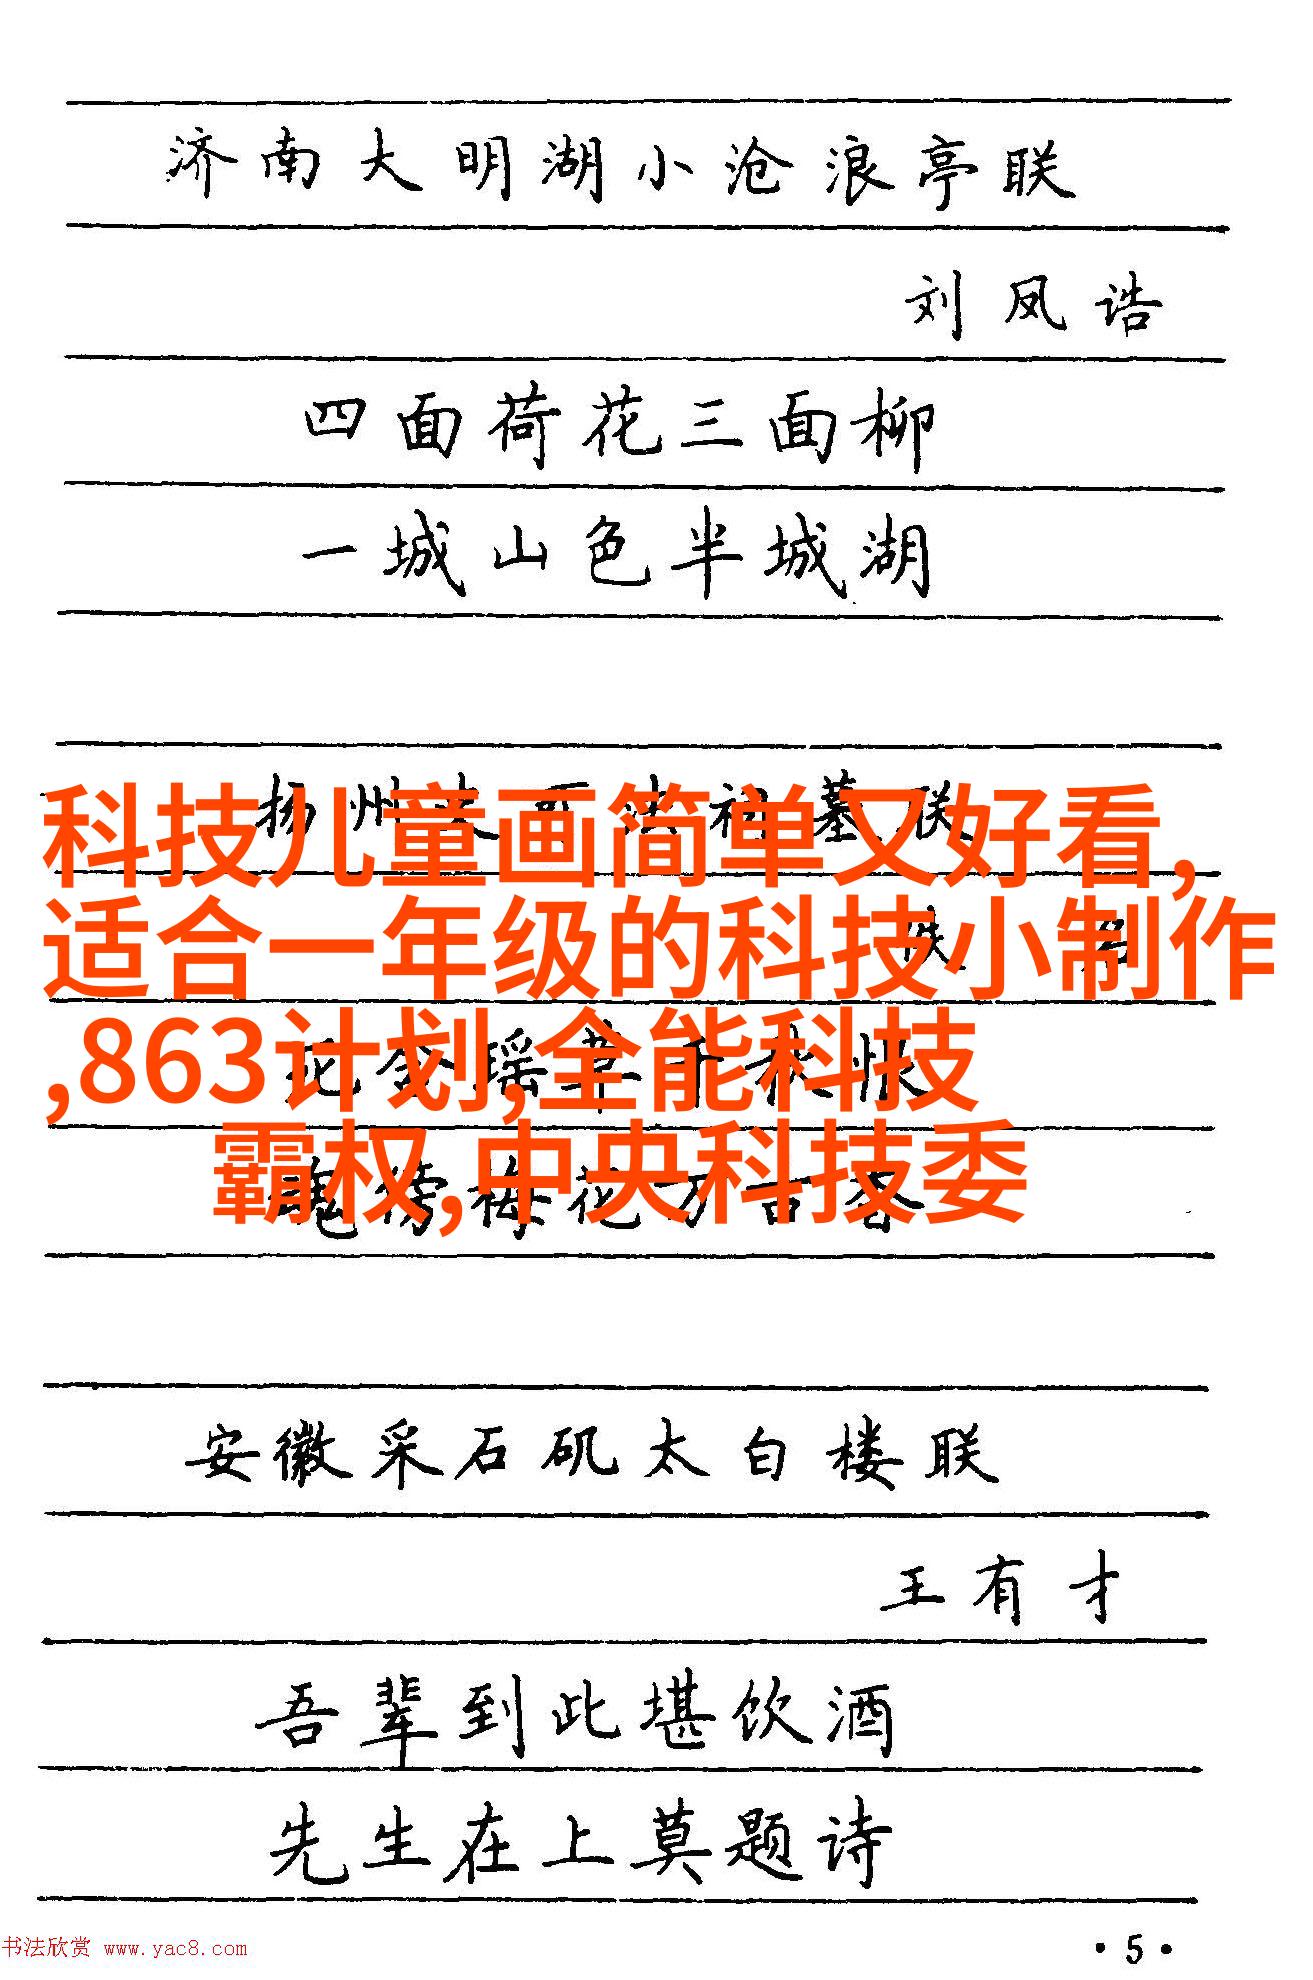 济南大明湖小沧浪亭联
刘凤诰
四面荷花三面柳
一城山色半城湖
扬州史可法祠墓联
科技儿童画简单又好看,
适合一年级的科技小制作
,863计划,全能科技
霸权,中央科技委
安徽采石矶太白楼联
王有才
吾辈到此堪饮酒
先生在上莫题诗
书法欣赏 www.yac8.com
·5·